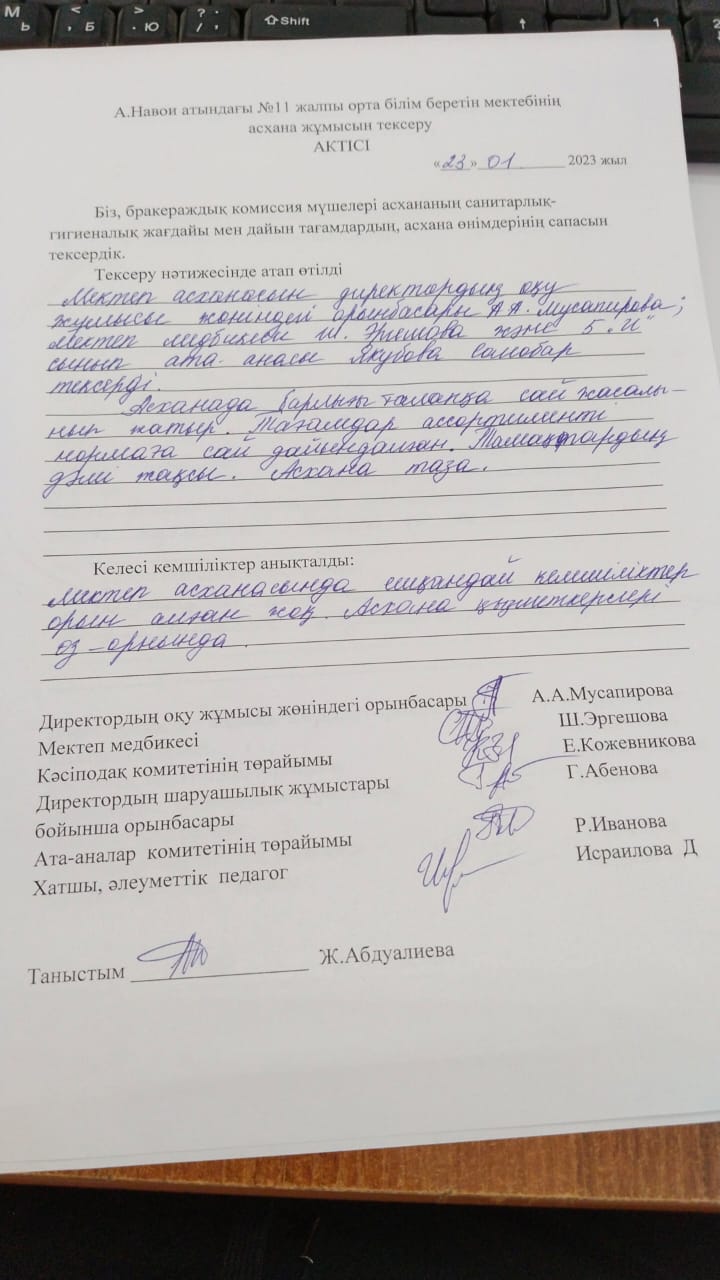 М
Ь
<
, Б
>
. Ю
?
/
⇧Shift
↑
1
2
А.Навои атындағы №11 жалпы орта білім беретін мектебінің
асхана жұмысын тексеру
АКТІСІ
«23» 01 2023 жыл
Біз, бракераждық комиссия мүшелері асхананың санитарлық-
гигиеналық жағдайы мен дайын тағамдардың, асхана өнімдерінің сапасын
тексердік.
Тексеру нәтижесінде атап өтілді
Мектеп асханасын директордың оқу
жұмысы жөніндегі орынбасары А.А. Мусапирова;
Мектеп медбикесі Ш. Эргешова және 5 „И"
сынып ата-анасы Якубова Санобар
тексерді.
Асханада барлығы талапқа сай жасалы-
нып жатыр. Тағамдар ассортименті
нормаға сай дайындалған. Тамақтардың
дәмі жақсы. Асхана таза.
Келесі кемшіліктер анықталды:
Мектеп асханасында ешқандай кемшіліктер
орын алған жоқ. Асхана қызметкерлері
өз-орнында.
Директордың оқу жұмысы жөніндегі орынбасары А.А.Мусапирова
Мектеп медбикесі Ш.Эргешова
Кәсіподақ комитетінің төрайымы Е.Кожевникова
Директордың шаруашылық жұмыстары Г.Абенова
бойынша орынбасары
Ата-аналар комитетінің төрайымы Р.Иванова
Хатшы, әлеуметтік педагог Исраилова Д
Таныстым Ж.Абдуалиева